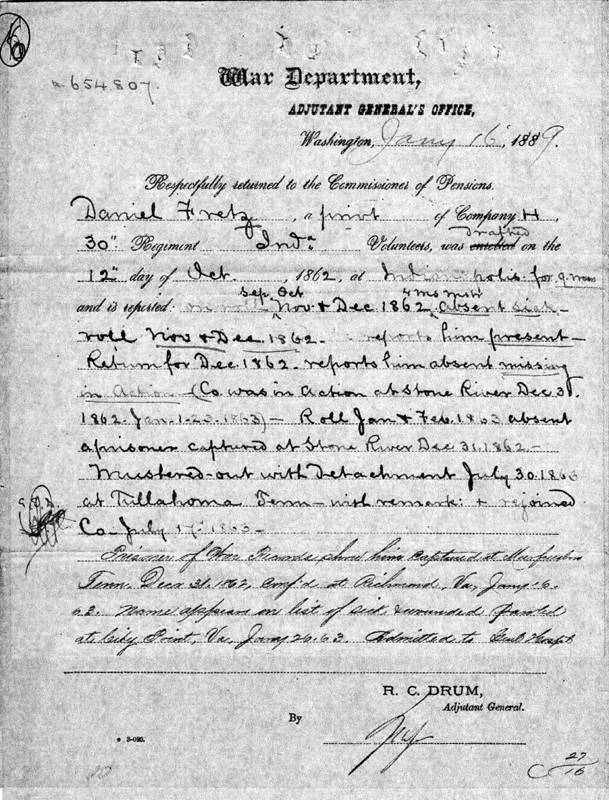 6
a 654807.
War Department,
ADJUTANT GENERAL'S OFFICE,
Washington, Jany 16, 1889.
Respectfully returned to the Commissioner of Pensions.
Daniel Fretz, a privt of Company H,
Drafted
30" Regiment Inda Volunteers, was enrolled on the
12" day of Oct., 1862, at Indianapolis for 9 mos
Sep. Oct 4 ms mst
and is reported: on roll Nov & Dec 1862 Absent sick -
roll Nov & Dec. 1862. reports him present -
Return for Dec. 1862. reports him absent missing
in Action - (Co. was in Action at Stone River Dec. 31.
1862. Jan. 1.2.3. 1863) - Roll Jan & Feb. 1863 absent
a prisoner captured at Stone River Dec 31. 1862. -
Mustered-out with Detachment July 30. 1863
at Tullahoma Tenn - with remark: + rejoined
Co. July 17. 1863 -
Prisoner of War Records show him captured at Murfreesboro
Tenn, Decr 31, 1862, conf'd at Richmond, Va, Jany 6.
63. Name appears on list of sick & wounded paroled
at City Point, Va, Jany 26. 63. Admitted to Genl Hospt
R. C. DRUM,
Adjutant General.
By
3-093.
C 27/16